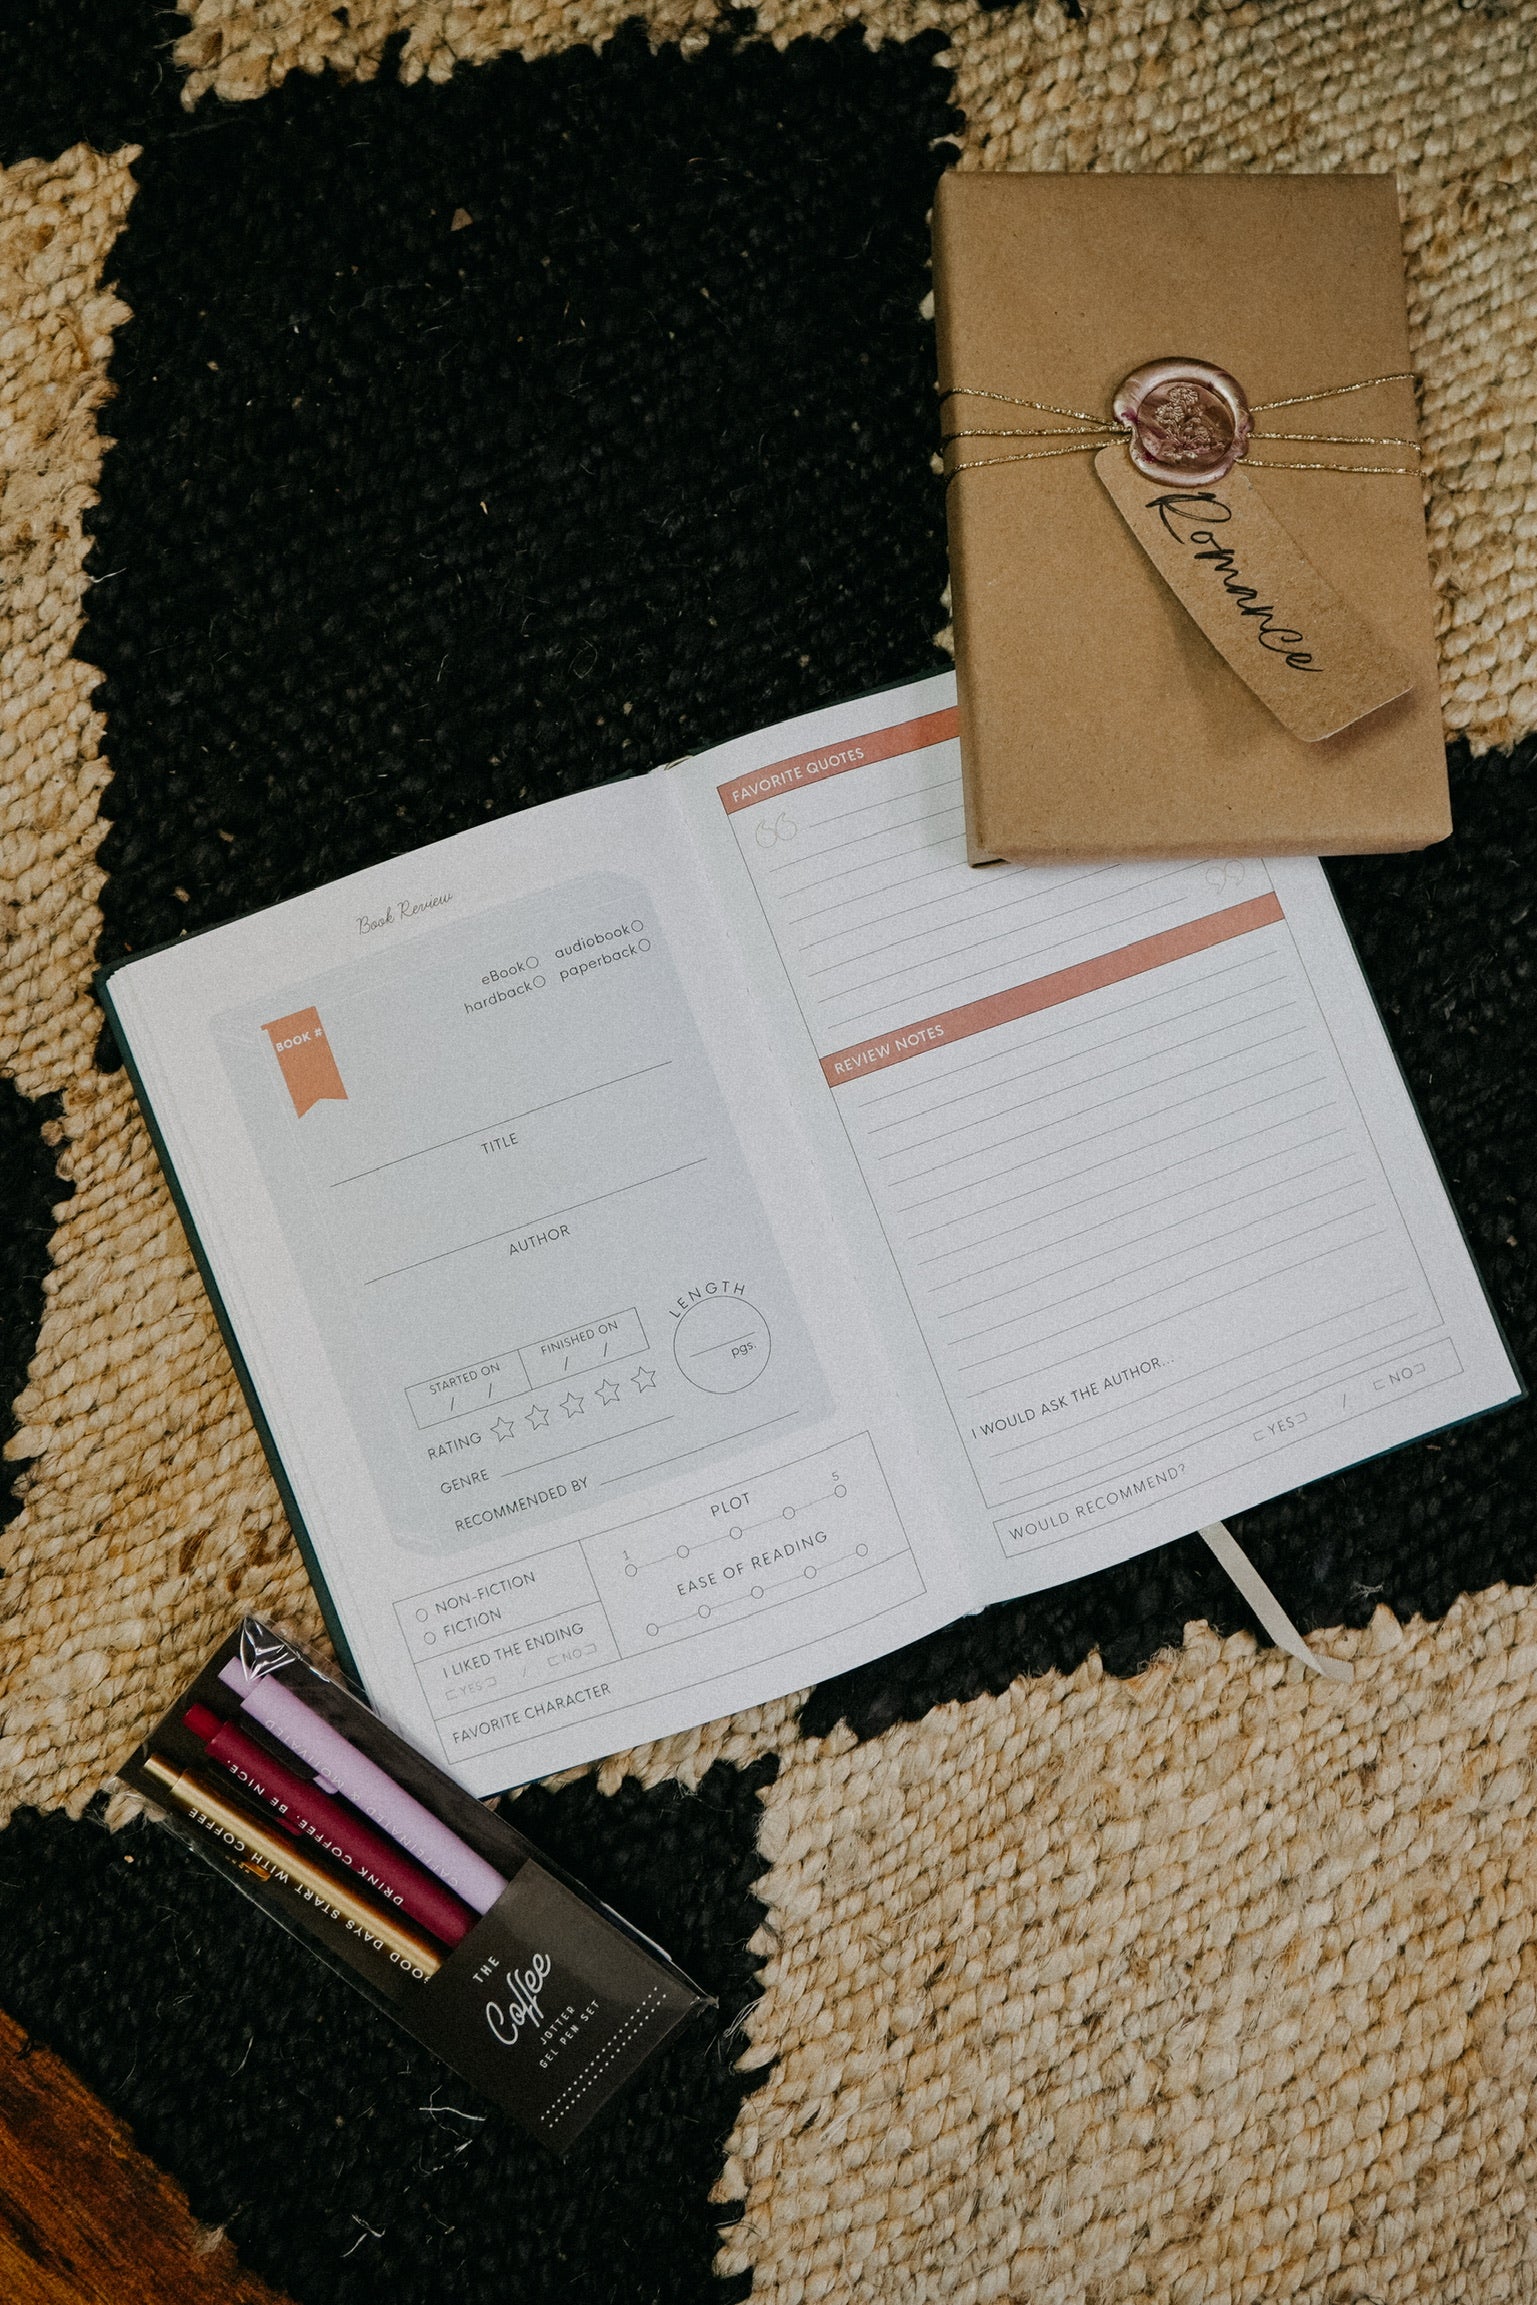 Romance
Book Review
eBook audiobook
hardback paperback
BOOK #
TITLE
AUTHOR
LENGTH
pgs.
STARTED ON
/ /
FINISHED ON
/ /
RATING
GENRE
RECOMMENDED BY
NON-FICTION
FICTION
I LIKED THE ENDING
YES / NO
FAVORITE CHARACTER
PLOT
1 5
EASE OF READING
FAVORITE QUOTES
“
”
REVIEW NOTES
I WOULD ASK THE AUTHOR...
WOULD RECOMMEND? YES / NO
CAFFEINATED & MOTIVATED
DRINK COFFEE. BE NICE.
GOOD DAYS START WITH COFFEE
THE
Coffee
JOTTER
GEL PEN SET